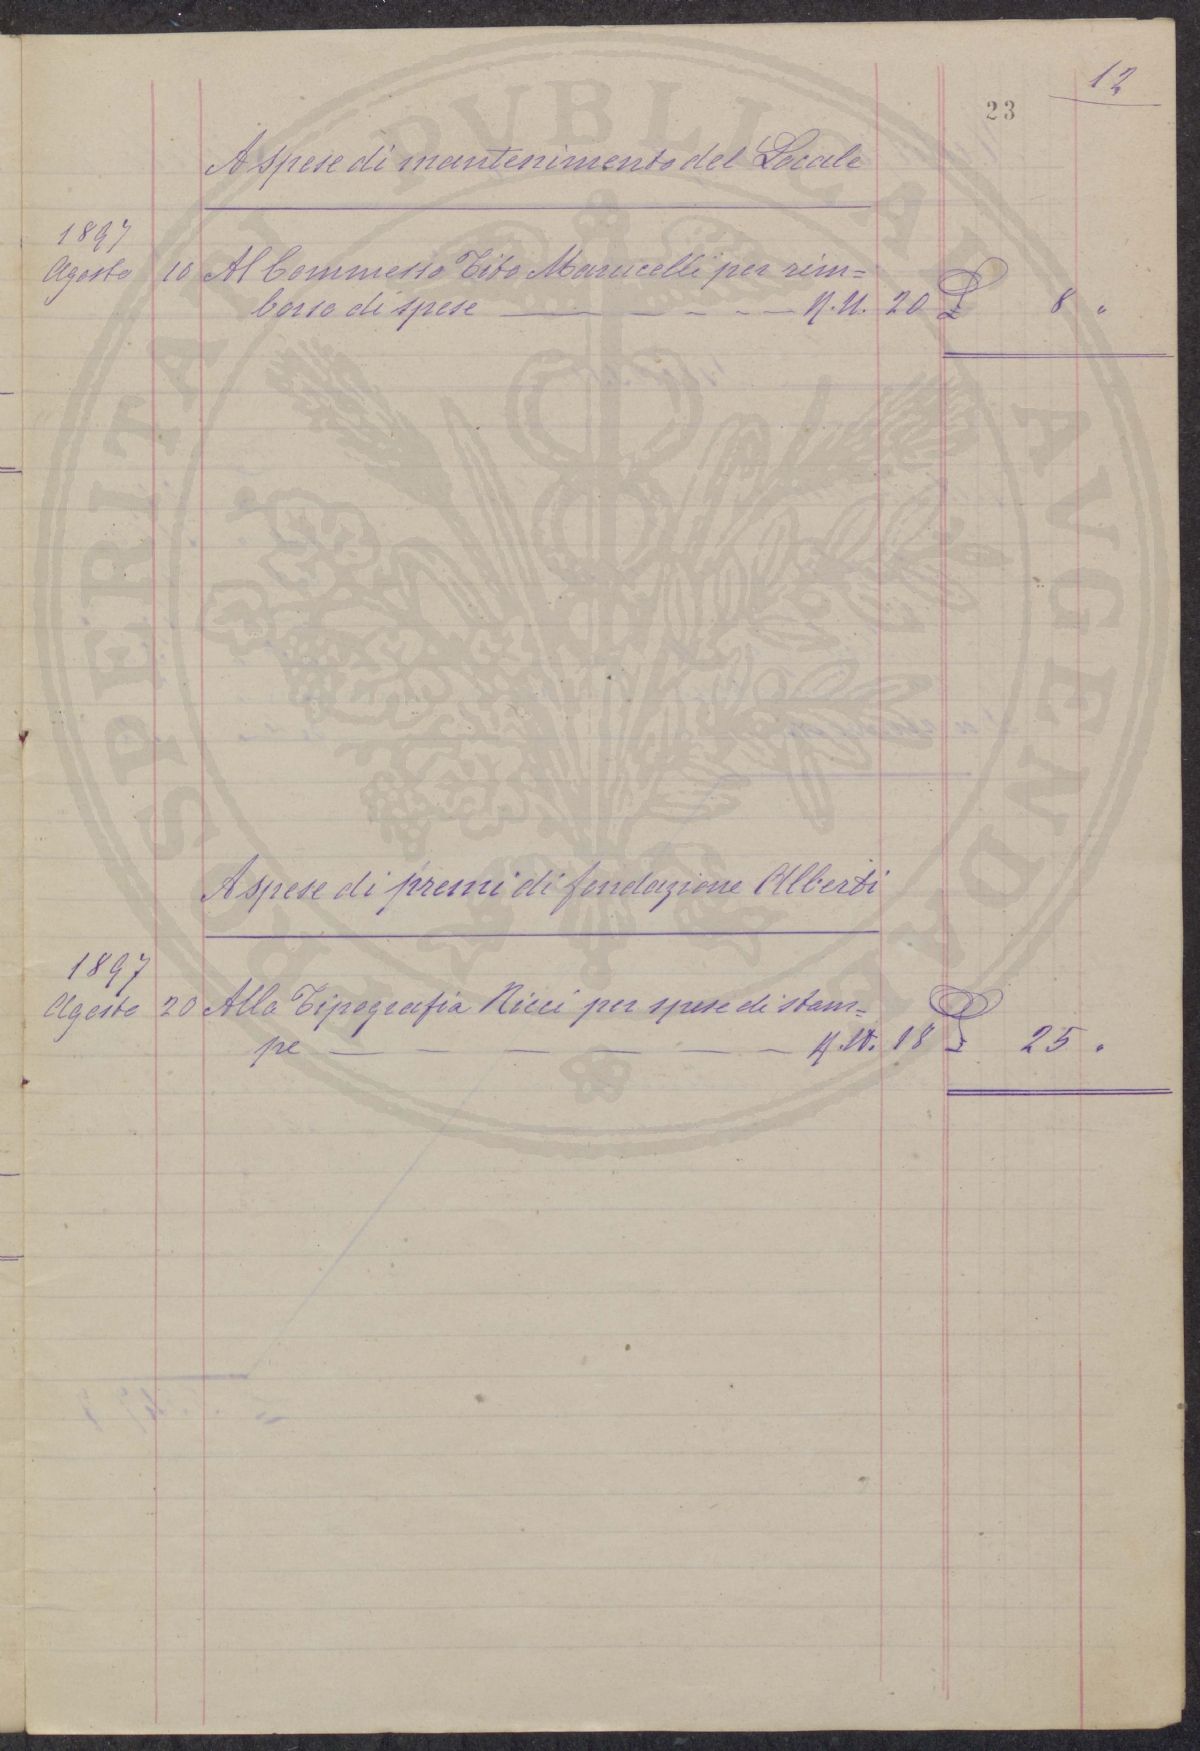 12
23
A spese di mantenimento del Locale
1897
Agosto 10 Al Commesso Tito Marucelli per rim=
borso di spese — — — — — — R.N. 20 £ 8 "
A spese di premi di fondazione Alberti
1897
Agosto 20 Alla Tipografia Ricci per spese di stam=
pe — — — — — — — R.N. 18 £ 25 "
PROSPERITATI PVBLICAE AVGENDAE